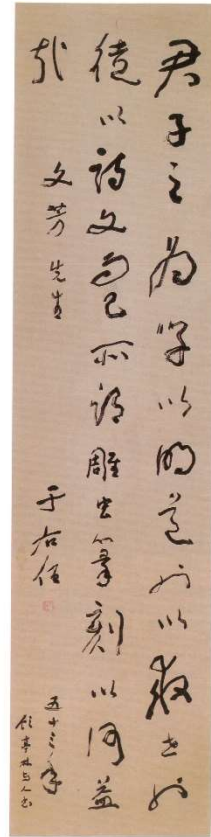 君子之為學以明道也以救世也
徒以詩文而已所謂雕虫篆刻以何益
哉
文芳先生
于右任
五十三年
顧亭林与人書